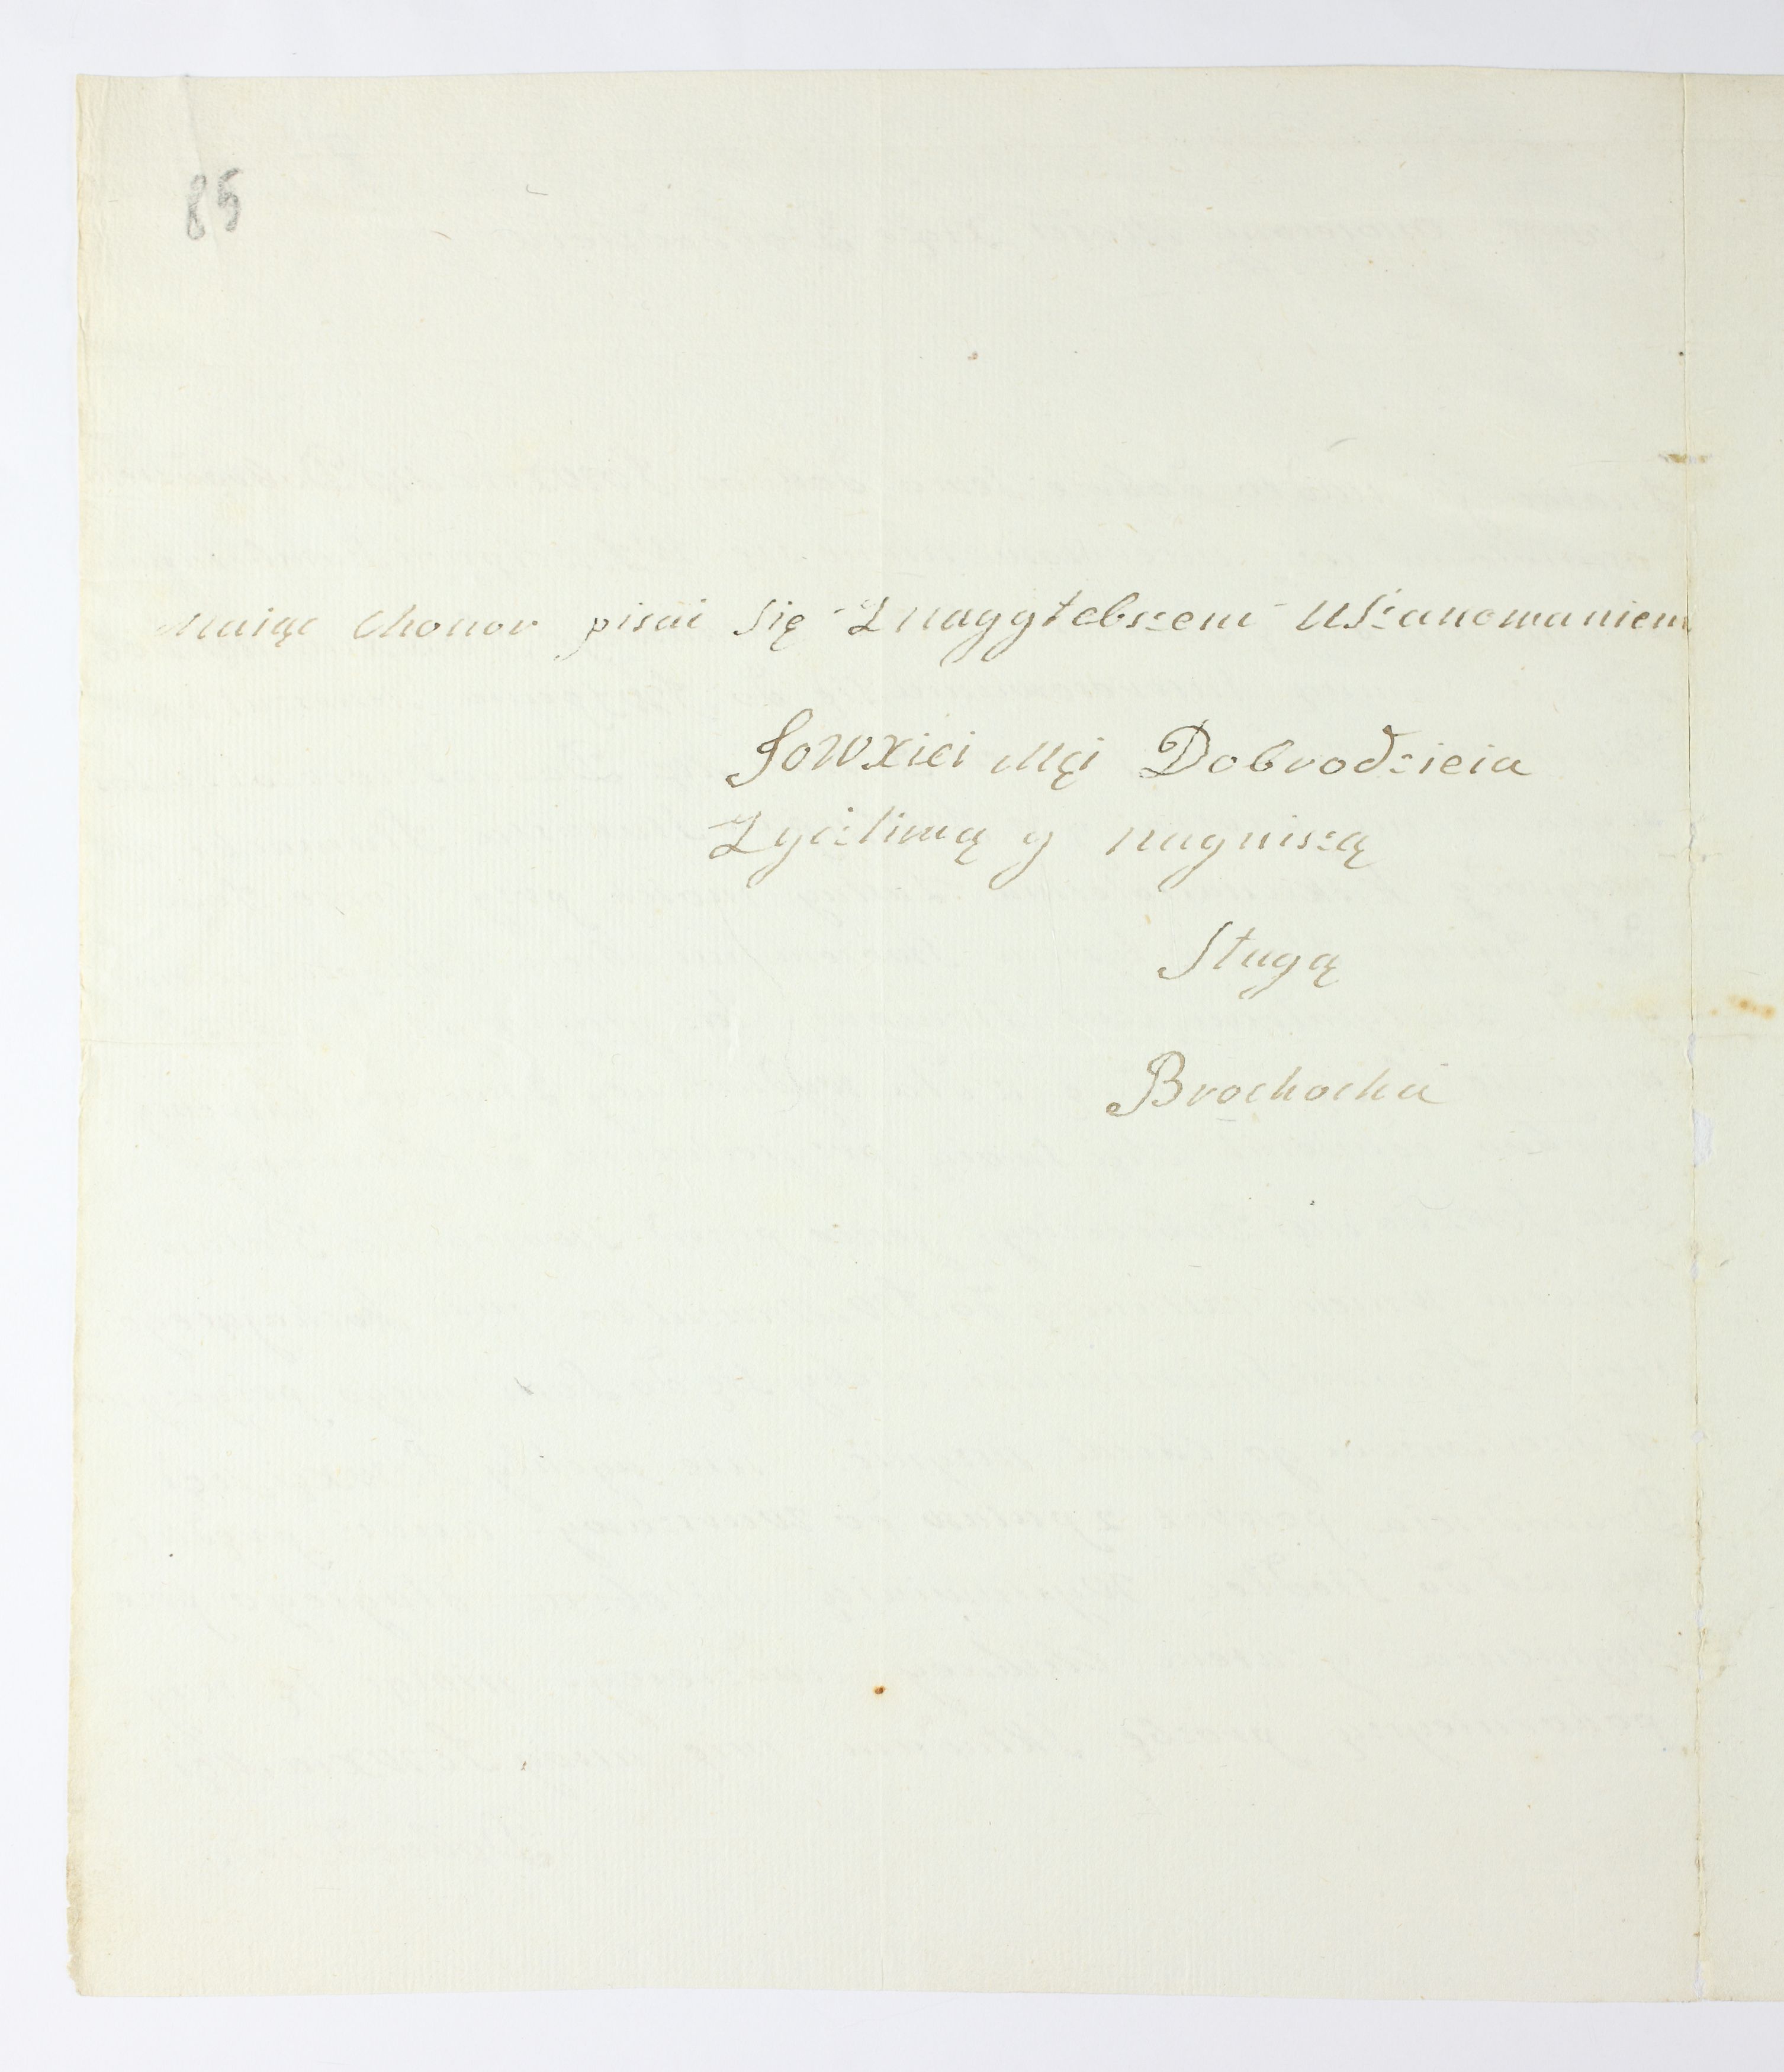 85
maiąc chonor pisać się z nayglebszem uszanowaniem
JOWXiei Mći Dobrodzieia
Zyczliwą y nayniszą
Sługą
Brochocka